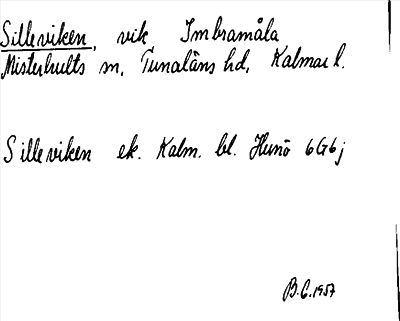 Silleviken, vik Imbramåla
Misterhults sn, Tunaläns hd, Kalmar l.
Silleviken ek. Kalm. bl. Hunö 6G6j
B.C. 1957